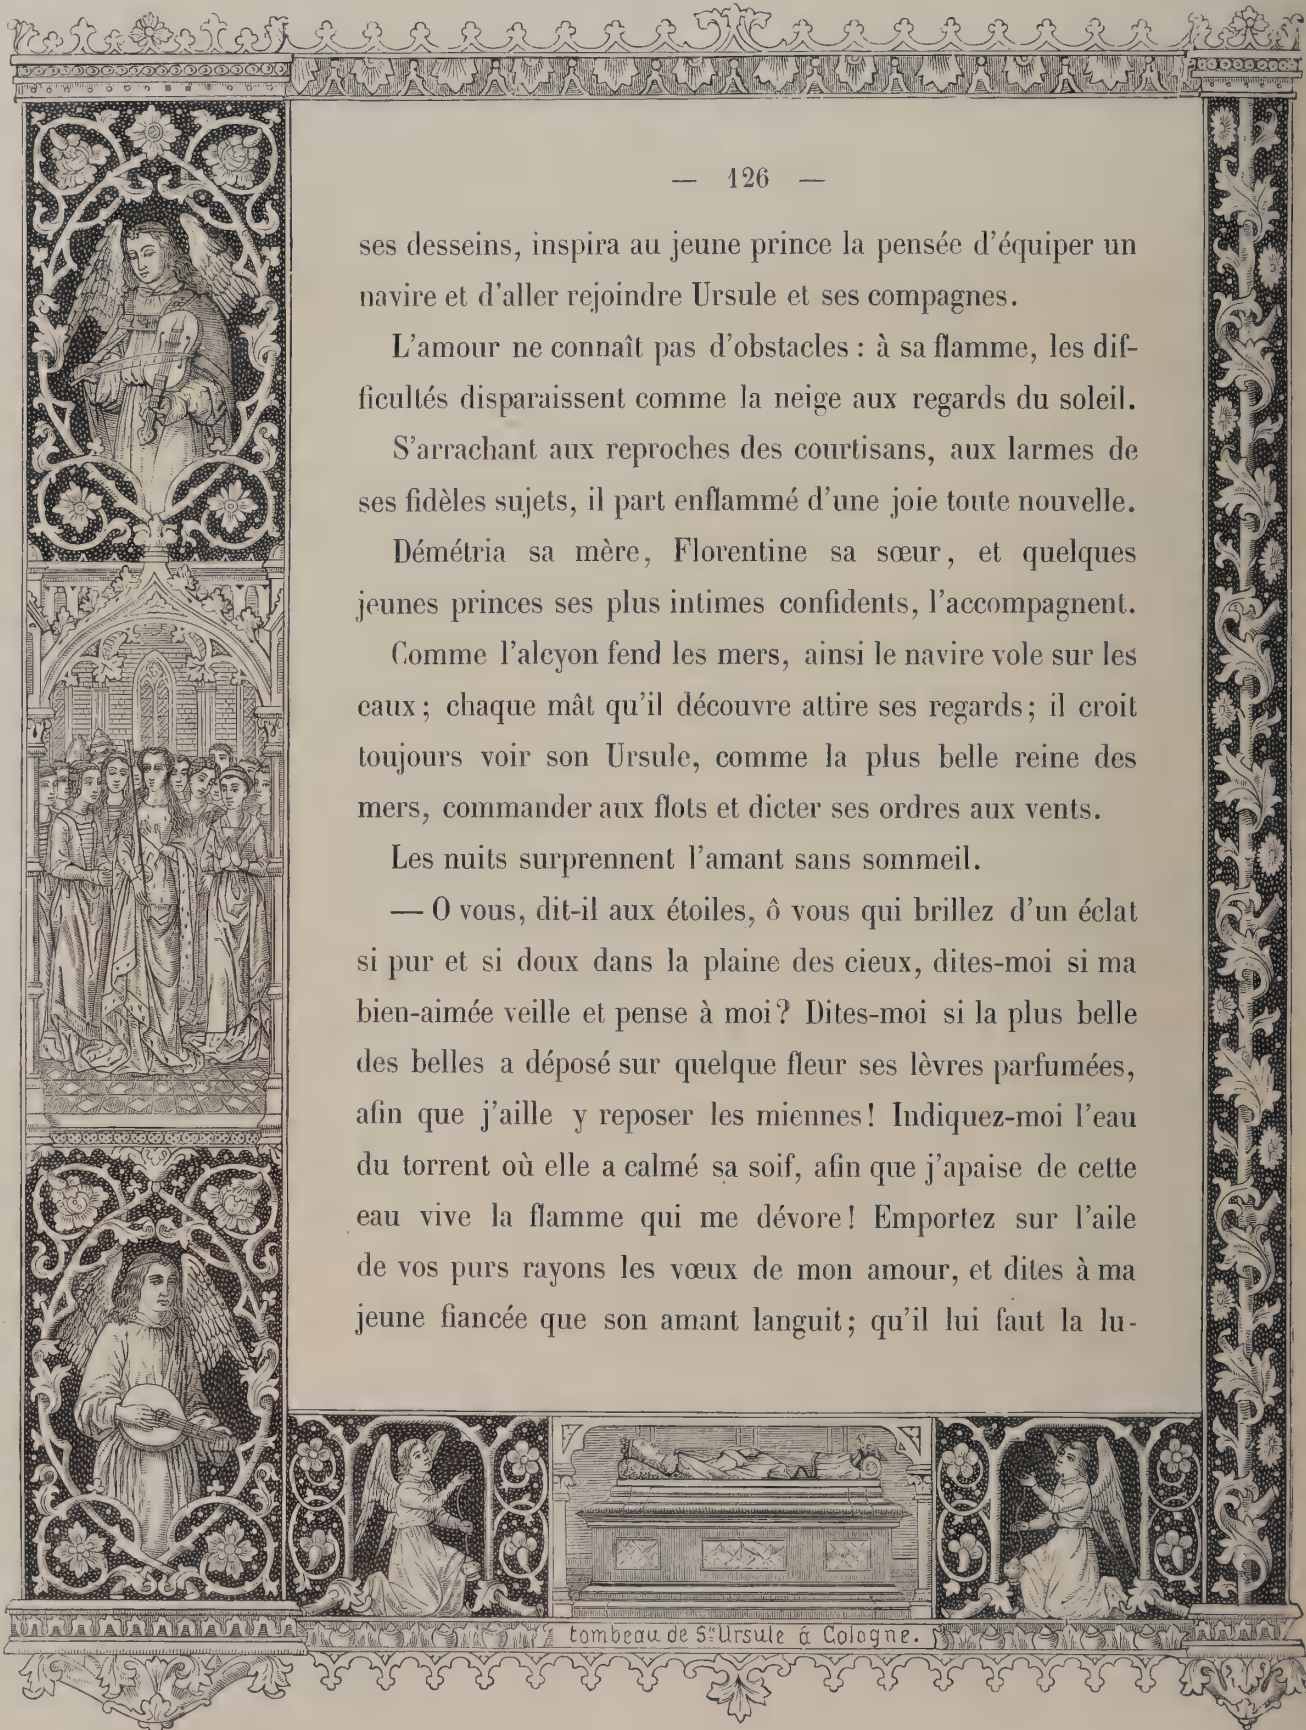 — 126 —
ses desseins, inspira au jeune prince la pensée d'équiper un
navire et d'aller rejoindre Ursule et ses compagnes.
L'amour ne connaît pas d'obstacles : à sa flamme, les dif-
ficultés disparaissent comme la neige aux regards du soleil.
S'arrachant aux reproches des courtisans, aux larmes de
ses fidèles sujets, il part enflammé d'une joie toute nouvelle.
Démétria sa mère, Florentine sa sœur, et quelques
jeunes princes ses plus intimes confidents, l'accompagnent.
Comme l'alcyon fend les mers, ainsi le navire vole sur les
eaux ; chaque mât qu'il découvre attire ses regards ; il croit
toujours voir son Ursule, comme la plus belle reine des
mers, commander aux flots et dicter ses ordres aux vents.
Les nuits surprennent l'amant sans sommeil.
— O vous, dit-il aux étoiles, ô vous qui brillez d'un éclat
si pur et si doux dans la plaine des cieux, dites-moi si ma
bien-aimée veille et pense à moi ? Dites-moi si la plus belle
des belles a déposé sur quelque fleur ses lèvres parfumées,
afin que j'aille y reposer les miennes ! Indiquez-moi l'eau
du torrent où elle a calmé sa soif, afin que j'apaise de cette
eau vive la flamme qui me dévore ! Emportez sur l'aile
de vos purs rayons les vœux de mon amour, et dites à ma
jeune fiancée que son amant languit ; qu'il lui faut la lu-
tombeau de Ste Ursule à Cologne.